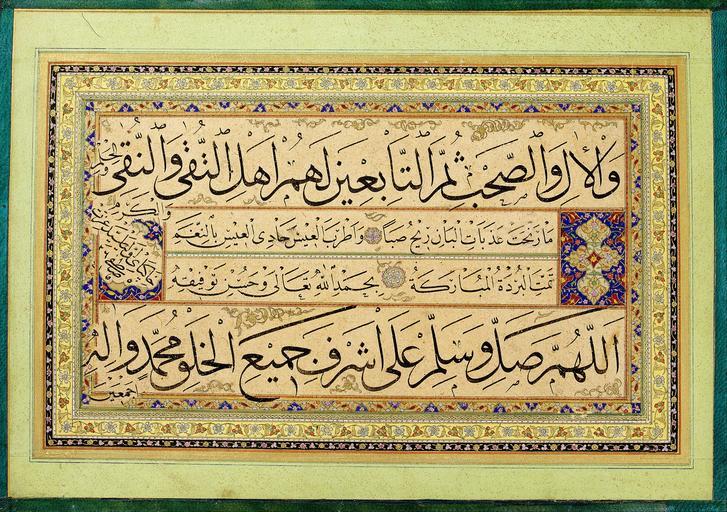 وَالْاٰلِ وَالصَّحْبِ ثُمَّ التَّابِعِينَ لَهُمْ اَهْلُ التُّقٰى وَالنُّقٰى
وَالْكَرَمِ
مَا رَنَّحَتْ عَذَبَاتِ الْبَانِ رِيْحُ صَبًا وَاَطْرَبَ الْعِيْسَ حَادِى الْعِيْسِ بِالنَّغَمِ
تَمَّتِ الْبُرْدَةُ الْمُبَارَكَةُ بِحَمْدِ اللّٰهِ تَعَالٰى وَحُسْنِ تَوْفِيْقِهِ
اَللّٰهُمَّ صَلِّ وَسَلِّمْ عَلٰى اَشْرَفِ جَمِيْعِ الْخَلْقِ مُحَمَّدٍ وَاٰلِهِ
اَجْمَعِيْنَ